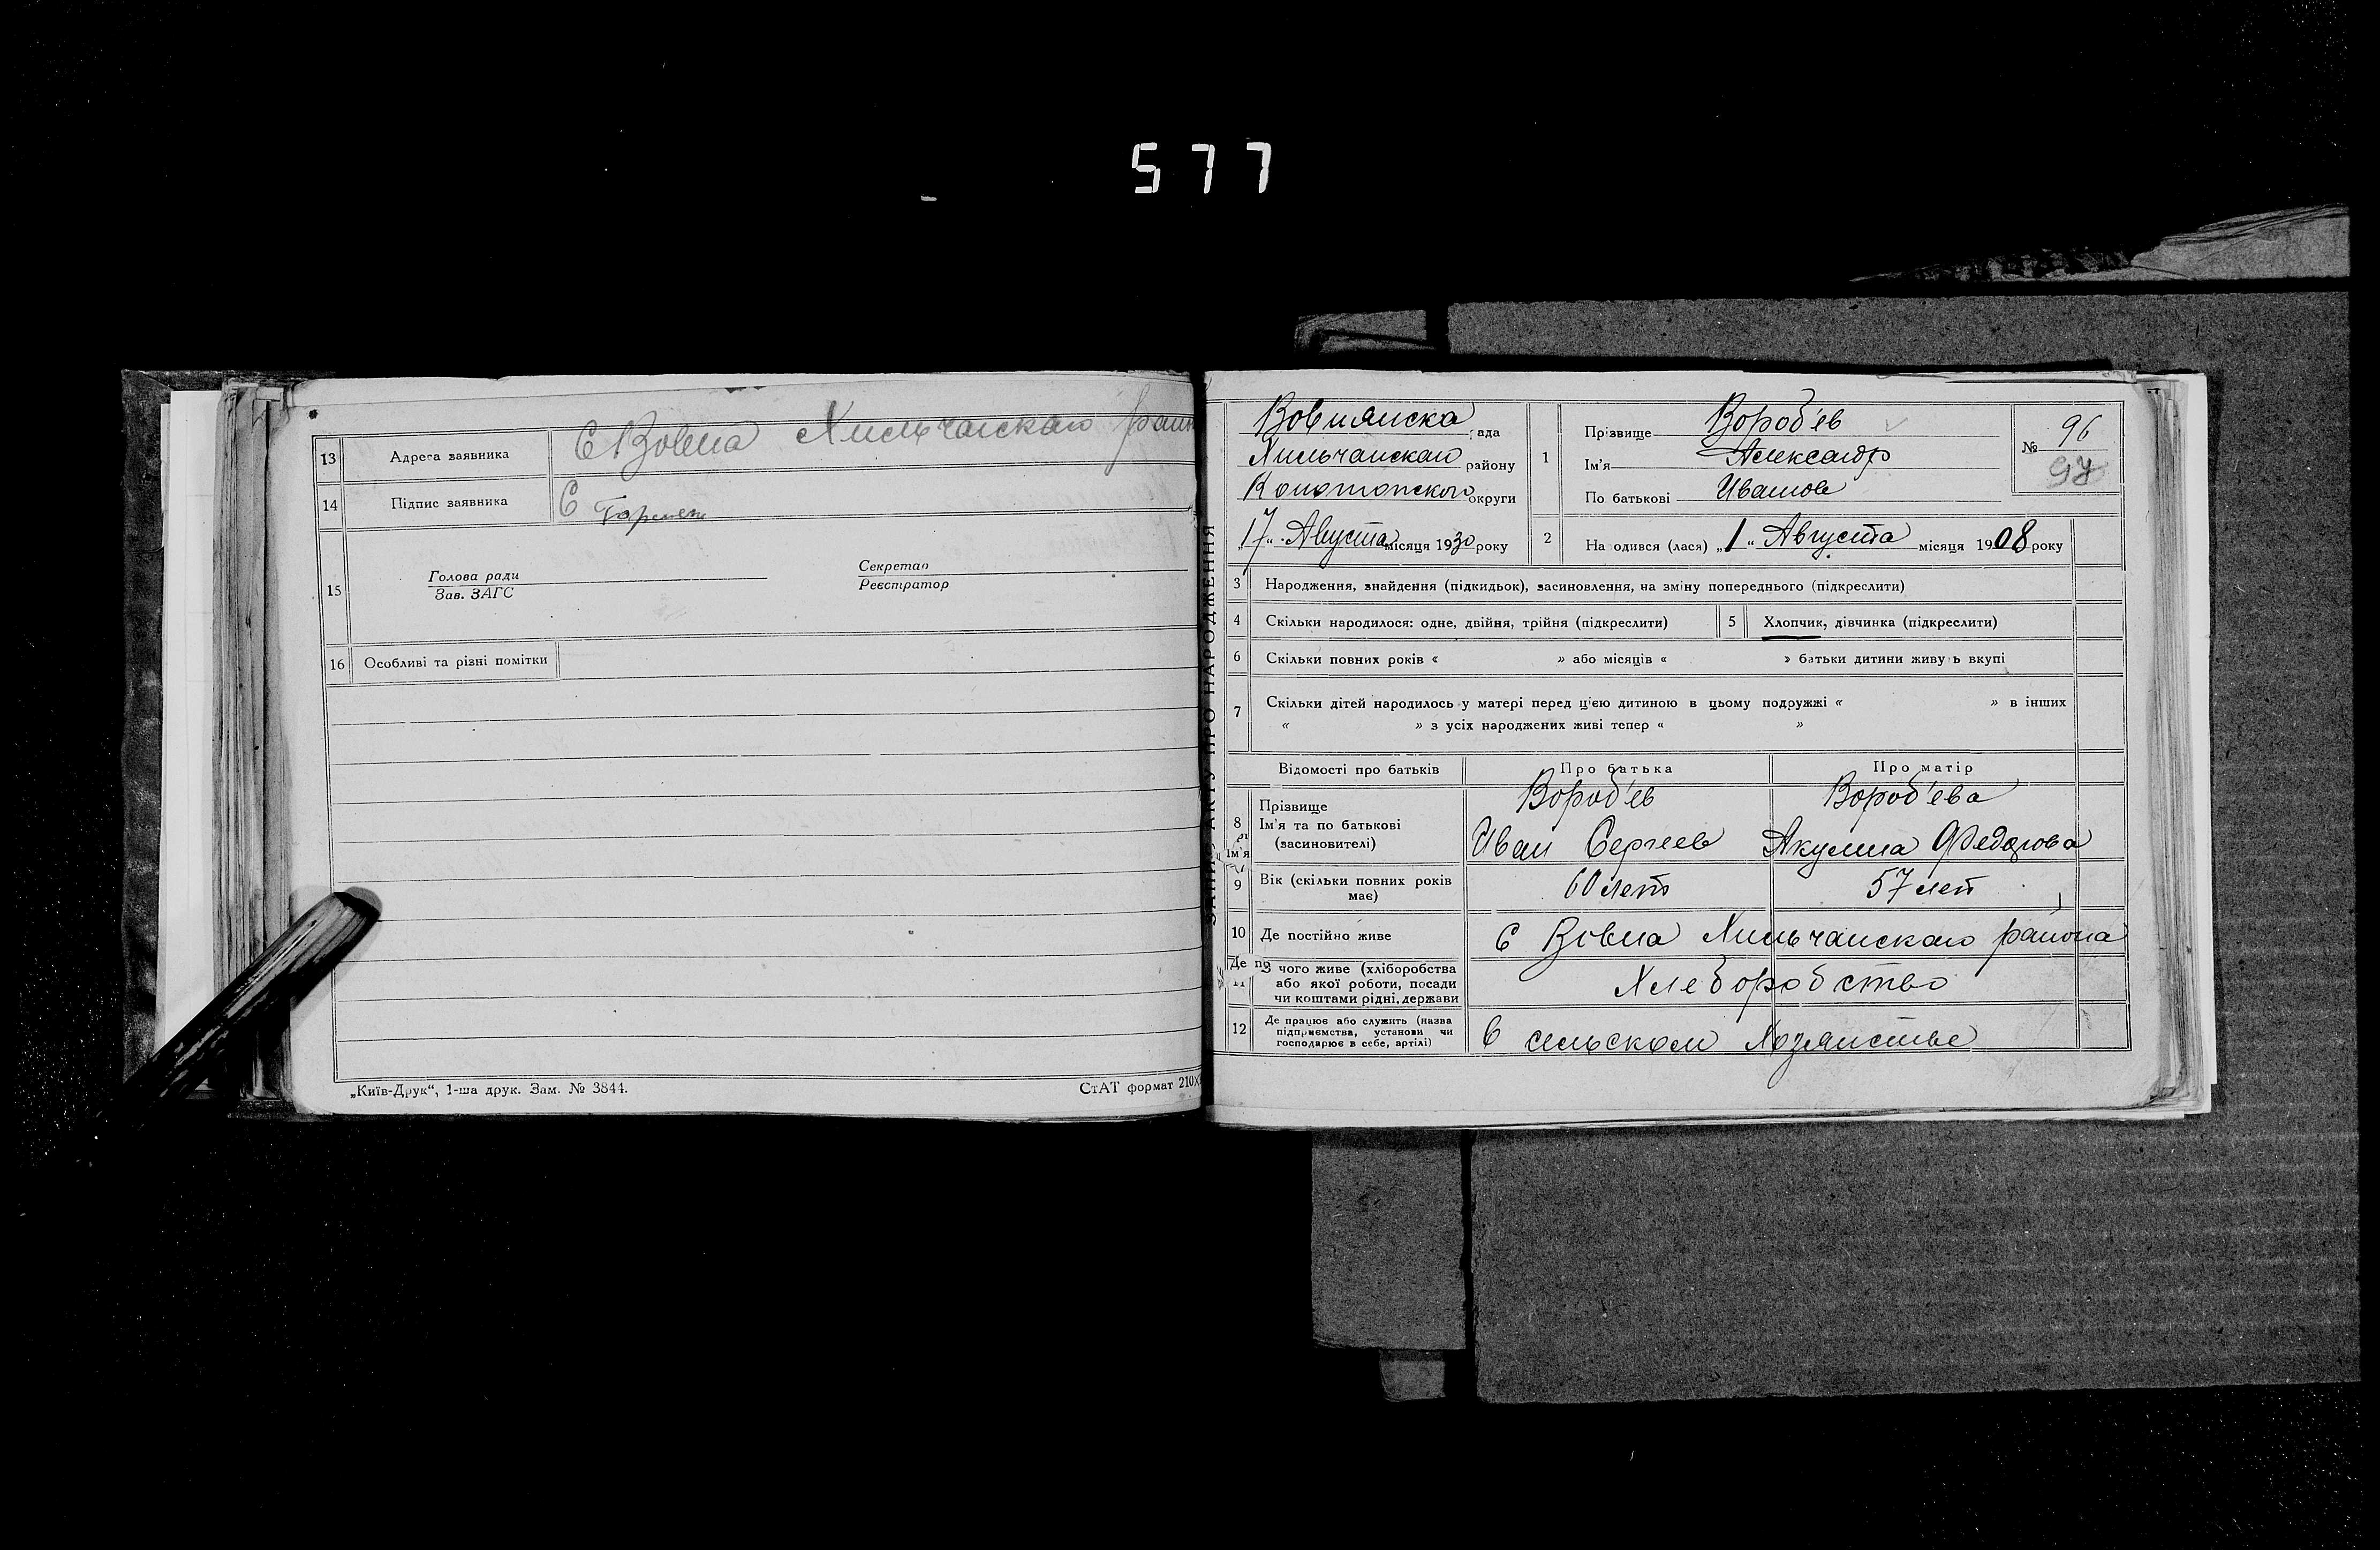 577
13 Адреса заявника С Вовна Хильчанскаго райн
14 Підпис заявника С
15 Голова ради Секретар
Зав. ЗАГС Реєстратор
16 Особливі та різні помітки
„Київ-Друк“, 1-ша друк. Зам. № 3844. СтАТ формат 210×
ЗАПИС АКТУ ПРО НАРОДЖЕННЯ
Вовнянска рада
Хильчанскаго району
Конотопского округи
„17“ Августа місяця 1930 року
1 Прізвище Вороб'ев
Ім'я Александр
По батькові Иванов
№ 96
97
2 На одився (лася) „1“ Августа місяця 1908 року
3 Народження, знайдення (підкидьок), засиновлення, на зміну попереднього (підкреслити)
4 Скільки народилося: одне, двійня, трійня (підкреслити) 5 Хлопчик, дівчинка (підкреслити)
6 Скільки повних років « » або місяців « » батьки дитини живуть вкупі
7 Скільки дітей народилось у матері перед цією дитиною в цьому подружжі « » в інших
« » з усіх народжених живі тепер « »
Відомості про батьків Про батька Про матір
8 Прізвище Вороб'ев Вороб'ева
Ім'я та по батькові
(засновителі) Иван Сергеев Акулина Федорова
Ім'я
9 Вік (скільки повних років
має) 60 лет 57 лет
10 Де постійно живе С Вовна Хильчанскаго района
Де по
11 З чого живе (хліборобства
або якої роботи, посади
чи коштами рідні, держави Хлеборобство
12 Де працює або служить (назва
підприємства, установи чи
господарює в себе, артілі) В сельском Хозяистве